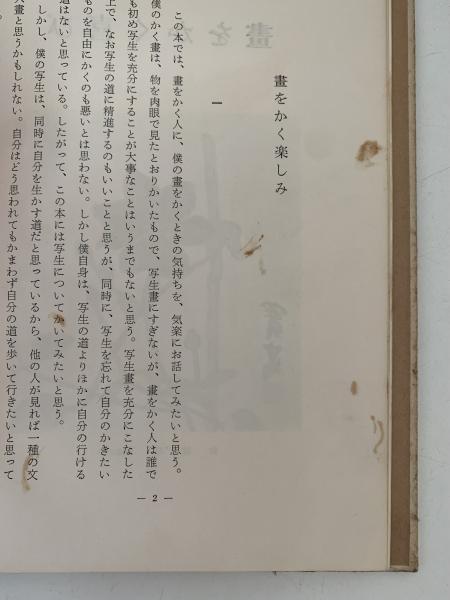 畫をかく楽しみ
一
この本では、畫をかく人に、僕の畫をかくときの気持ちを、気楽にお話してみたいと思う。
僕のかく畫は、物を肉眼で見たとおりかいたもので、写生畫にすぎないが、畫をかく人は誰で
も初め写生を充分にすることが大事なことはいうまでもないと思う。写生畫を充分にこなした
上で、なお写生の道に精進するのもいいことと思うが、同時に、写生を忘れて自分のかきたい
ものを自由にかくのも悪いとは思わない。しかし僕自身は、写生の道よりほかに自分の行ける
道はないと思っている。したがって、この本には写生についてかいてみたいと思う。
しかし、僕の写生は、同時に自分を生かす道だと思っているから、他の人が見れば一種の文
人畫と思うかもしれない。自分はどう思われてもかまわず自分の道を歩いて行きたいと思って
— 2 —